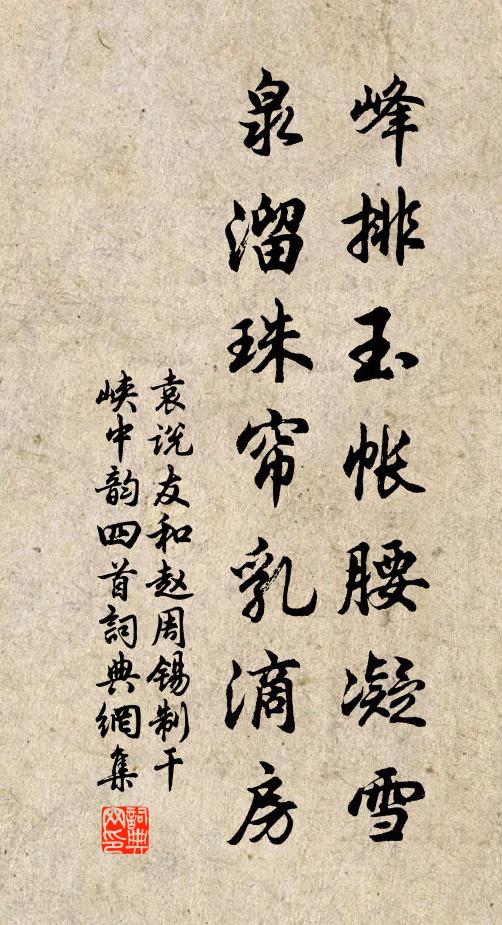 峰排玉帐腰凝雪
泉溜珠帘乳滴房
袁说友和赵周锡制干
峡中韵四首詞典網集
詞典
网印